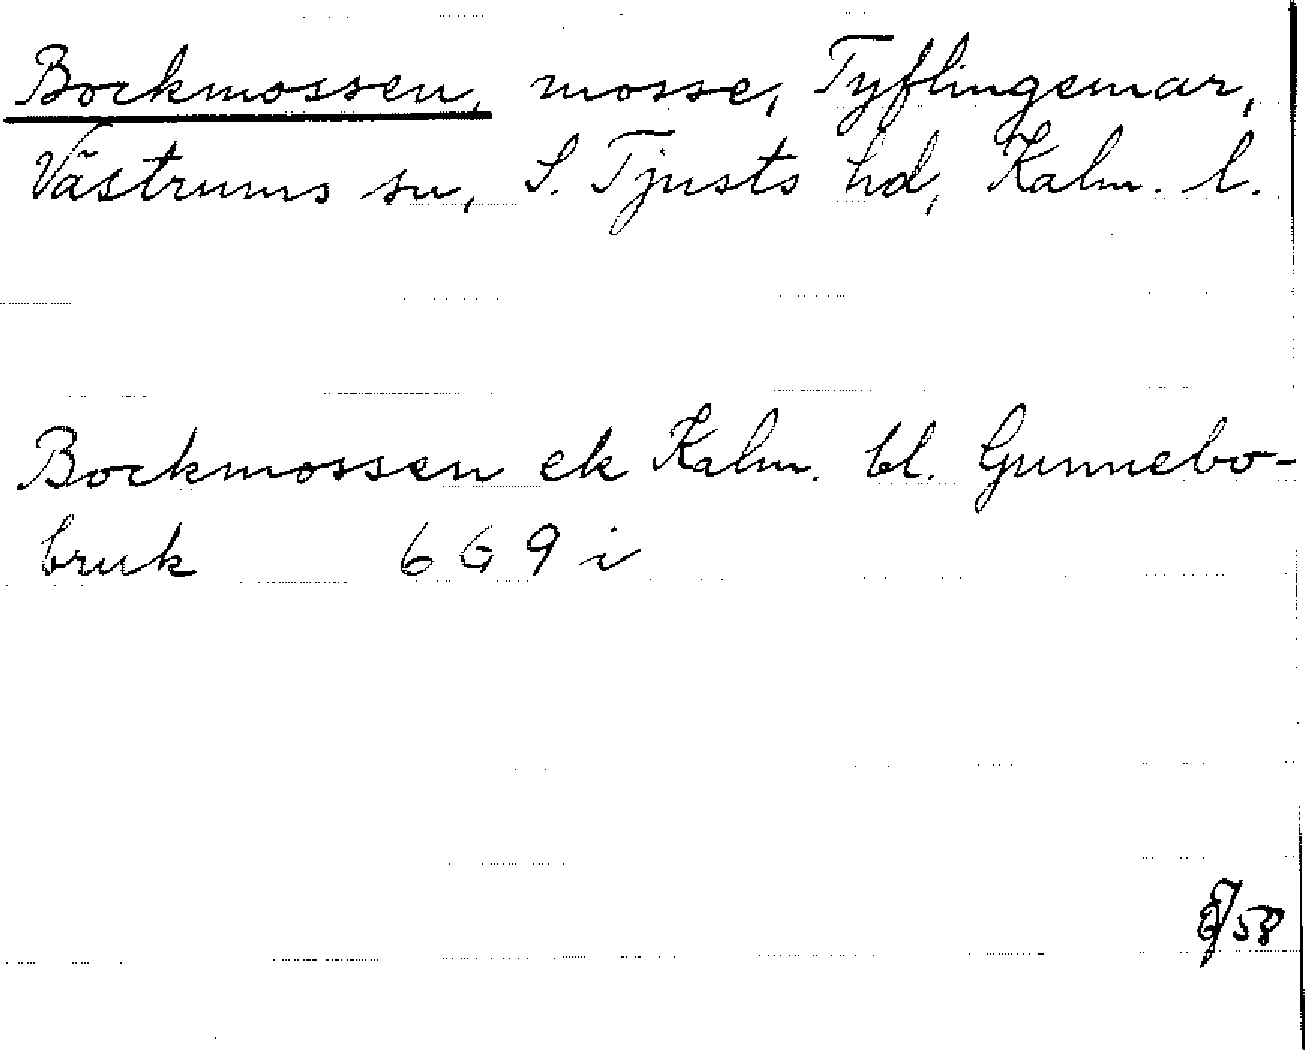 Bockmossen, mosse, Tyflingemar,
Västrums sn, S. Tjusts hd, Kalm. l.
Bockmossen ek Kalm. bl. Gunnebo-
bruk 669 i
/58